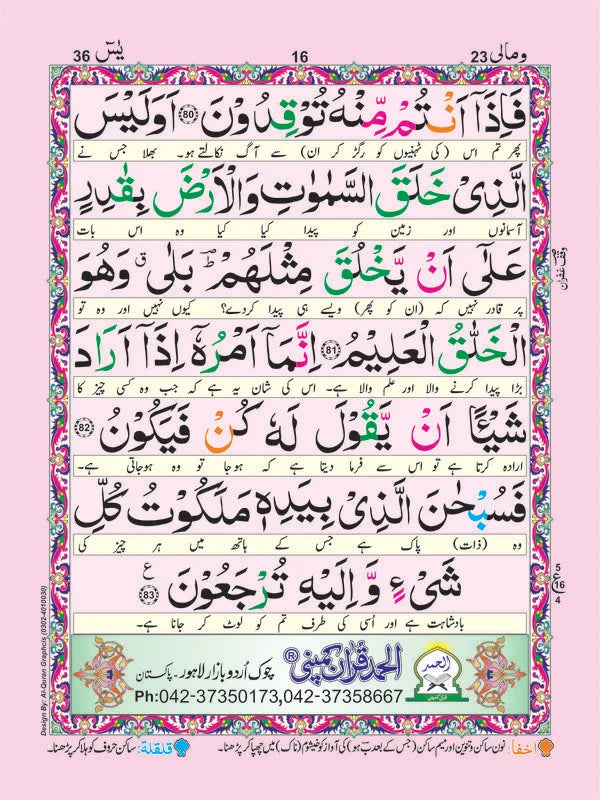 ومالی 23 16 یٰسٓ 36
فَاِذَاۤ اَنْتُمْ مِّنْهُ تُوْقِدُوْنَ ﴿80﴾ اَوَلَیْسَ
پھر تم اس (کی ٹہنیوں کو رگڑ کر ان) سے آگ نکالتے ہو۔ بھلا جس نے
الَّذِیْ خَلَقَ السَّمٰوٰتِ وَالْاَرْضَ بِقٰدِرٍ
آسمانوں اور زمین کو پیدا کیا کیا وہ اس بات
عَلٰۤی اَنْ یَّخْلُقَ مِثْلَهُمْ ؕ بَلٰی ۗ وَهُوَ
پر قادر نہیں کہ (ان کو پھر) ویسے ہی پیدا کردے؟ کیوں نہیں اور وہ تو
وقف غفران
الْخَلّٰقُ الْعَلِیْمُ ﴿81﴾ اِنَّمَاۤ اَمْرُهٗۤ اِذَاۤ اَرَادَ
بڑا پیدا کرنے والا اور علم والا ہے۔ اس کی شان یہ ہے کہ جب وہ کسی چیز کا
شَیْـًٔا اَنْ یَّقُوْلَ لَهٗ كُنْ فَیَكُوْنُ ﴿82﴾
ارادہ کرتا ہے تو اس سے فرما دیتا ہے کہ ہوجا تو وہ ہوجاتی ہے۔
فَسُبْحٰنَ الَّذِیْ بِیَدِهٖ مَلَكُوْتُ كُلِّ
وہ (ذات) پاک ہے جس کے ہاتھ میں ہر چیز کی
شَیْءٍ وَّاِلَیْهِ تُرْجَعُوْنَ ﴿83﴾ ع
5 ع 16 4
بادشاہت ہے اور اُسی کی طرف تم کو لوٹ کر جانا ہے۔
الحمد قرآن کمپنی ® چوک اُردو بازار لاہور - پاکستان
Ph:042-37350173,042-37358667
الحمد
قرآن کمپنی
Design By: Al-Quran Graphcis (0302-4010030)
اخفا: نون ساکن و تنوین اور میم ساکن (جس کے بعد ب ہو) کی آواز کو خیشوم (ناک) میں چھپا کر پڑھنا۔ قلقلة: ساکن حروف کو ہلا کر پڑھنا۔